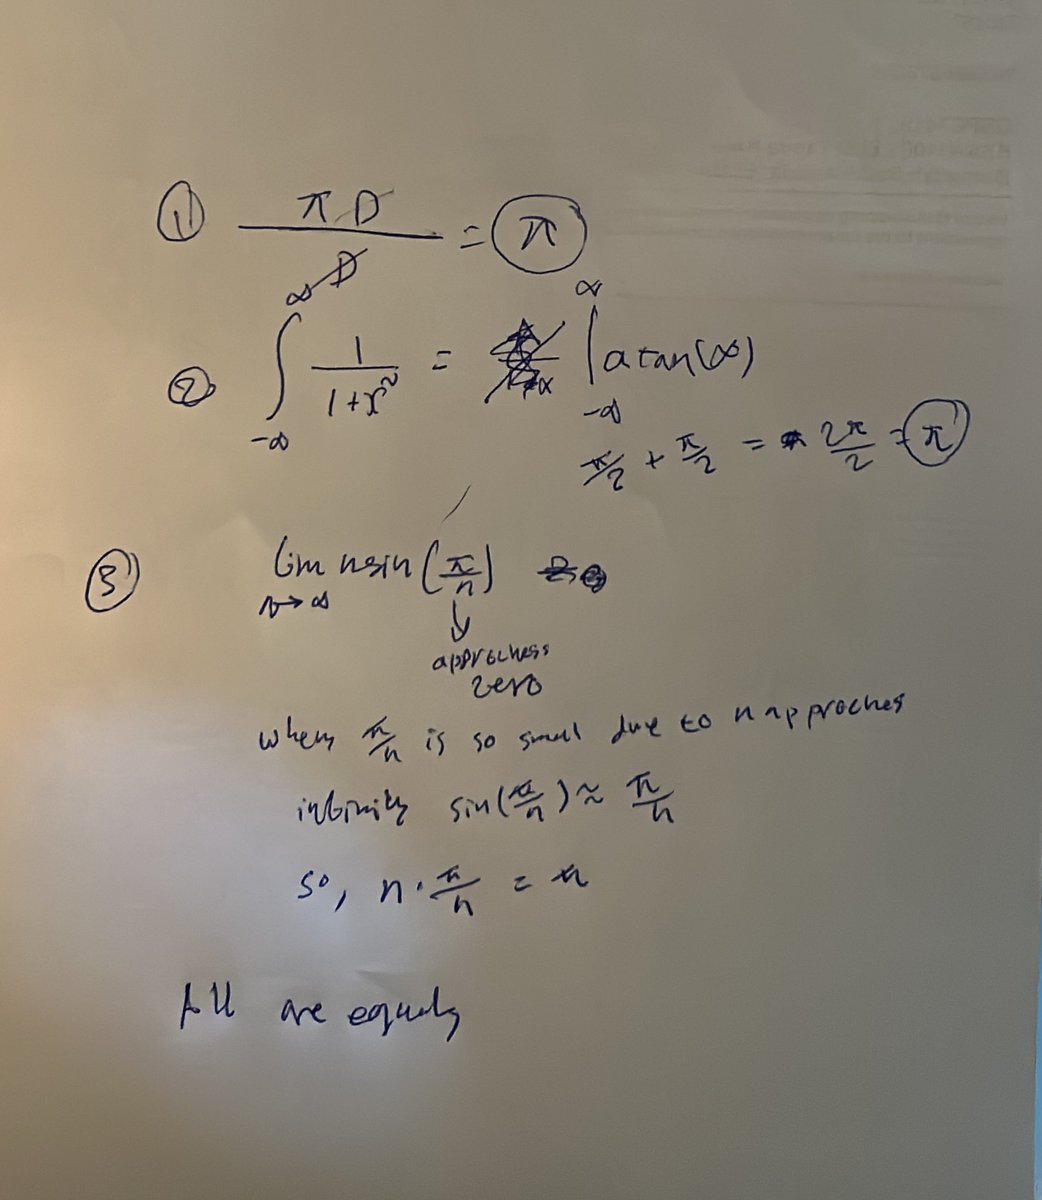 ① πD/D = π
② ∫_{-∞}^{∞} 1/(1+x²) = |_{-∞}^{∞} atan(∞)
π/2 + π/2 = 2π/2 = π
③ lim n→∞ n sin(π/n)
↓
approchess
zero
when π/n is so small due to n approches
infinity sin(π/n) ≈ π/n
so, n·π/n = π
All are equal